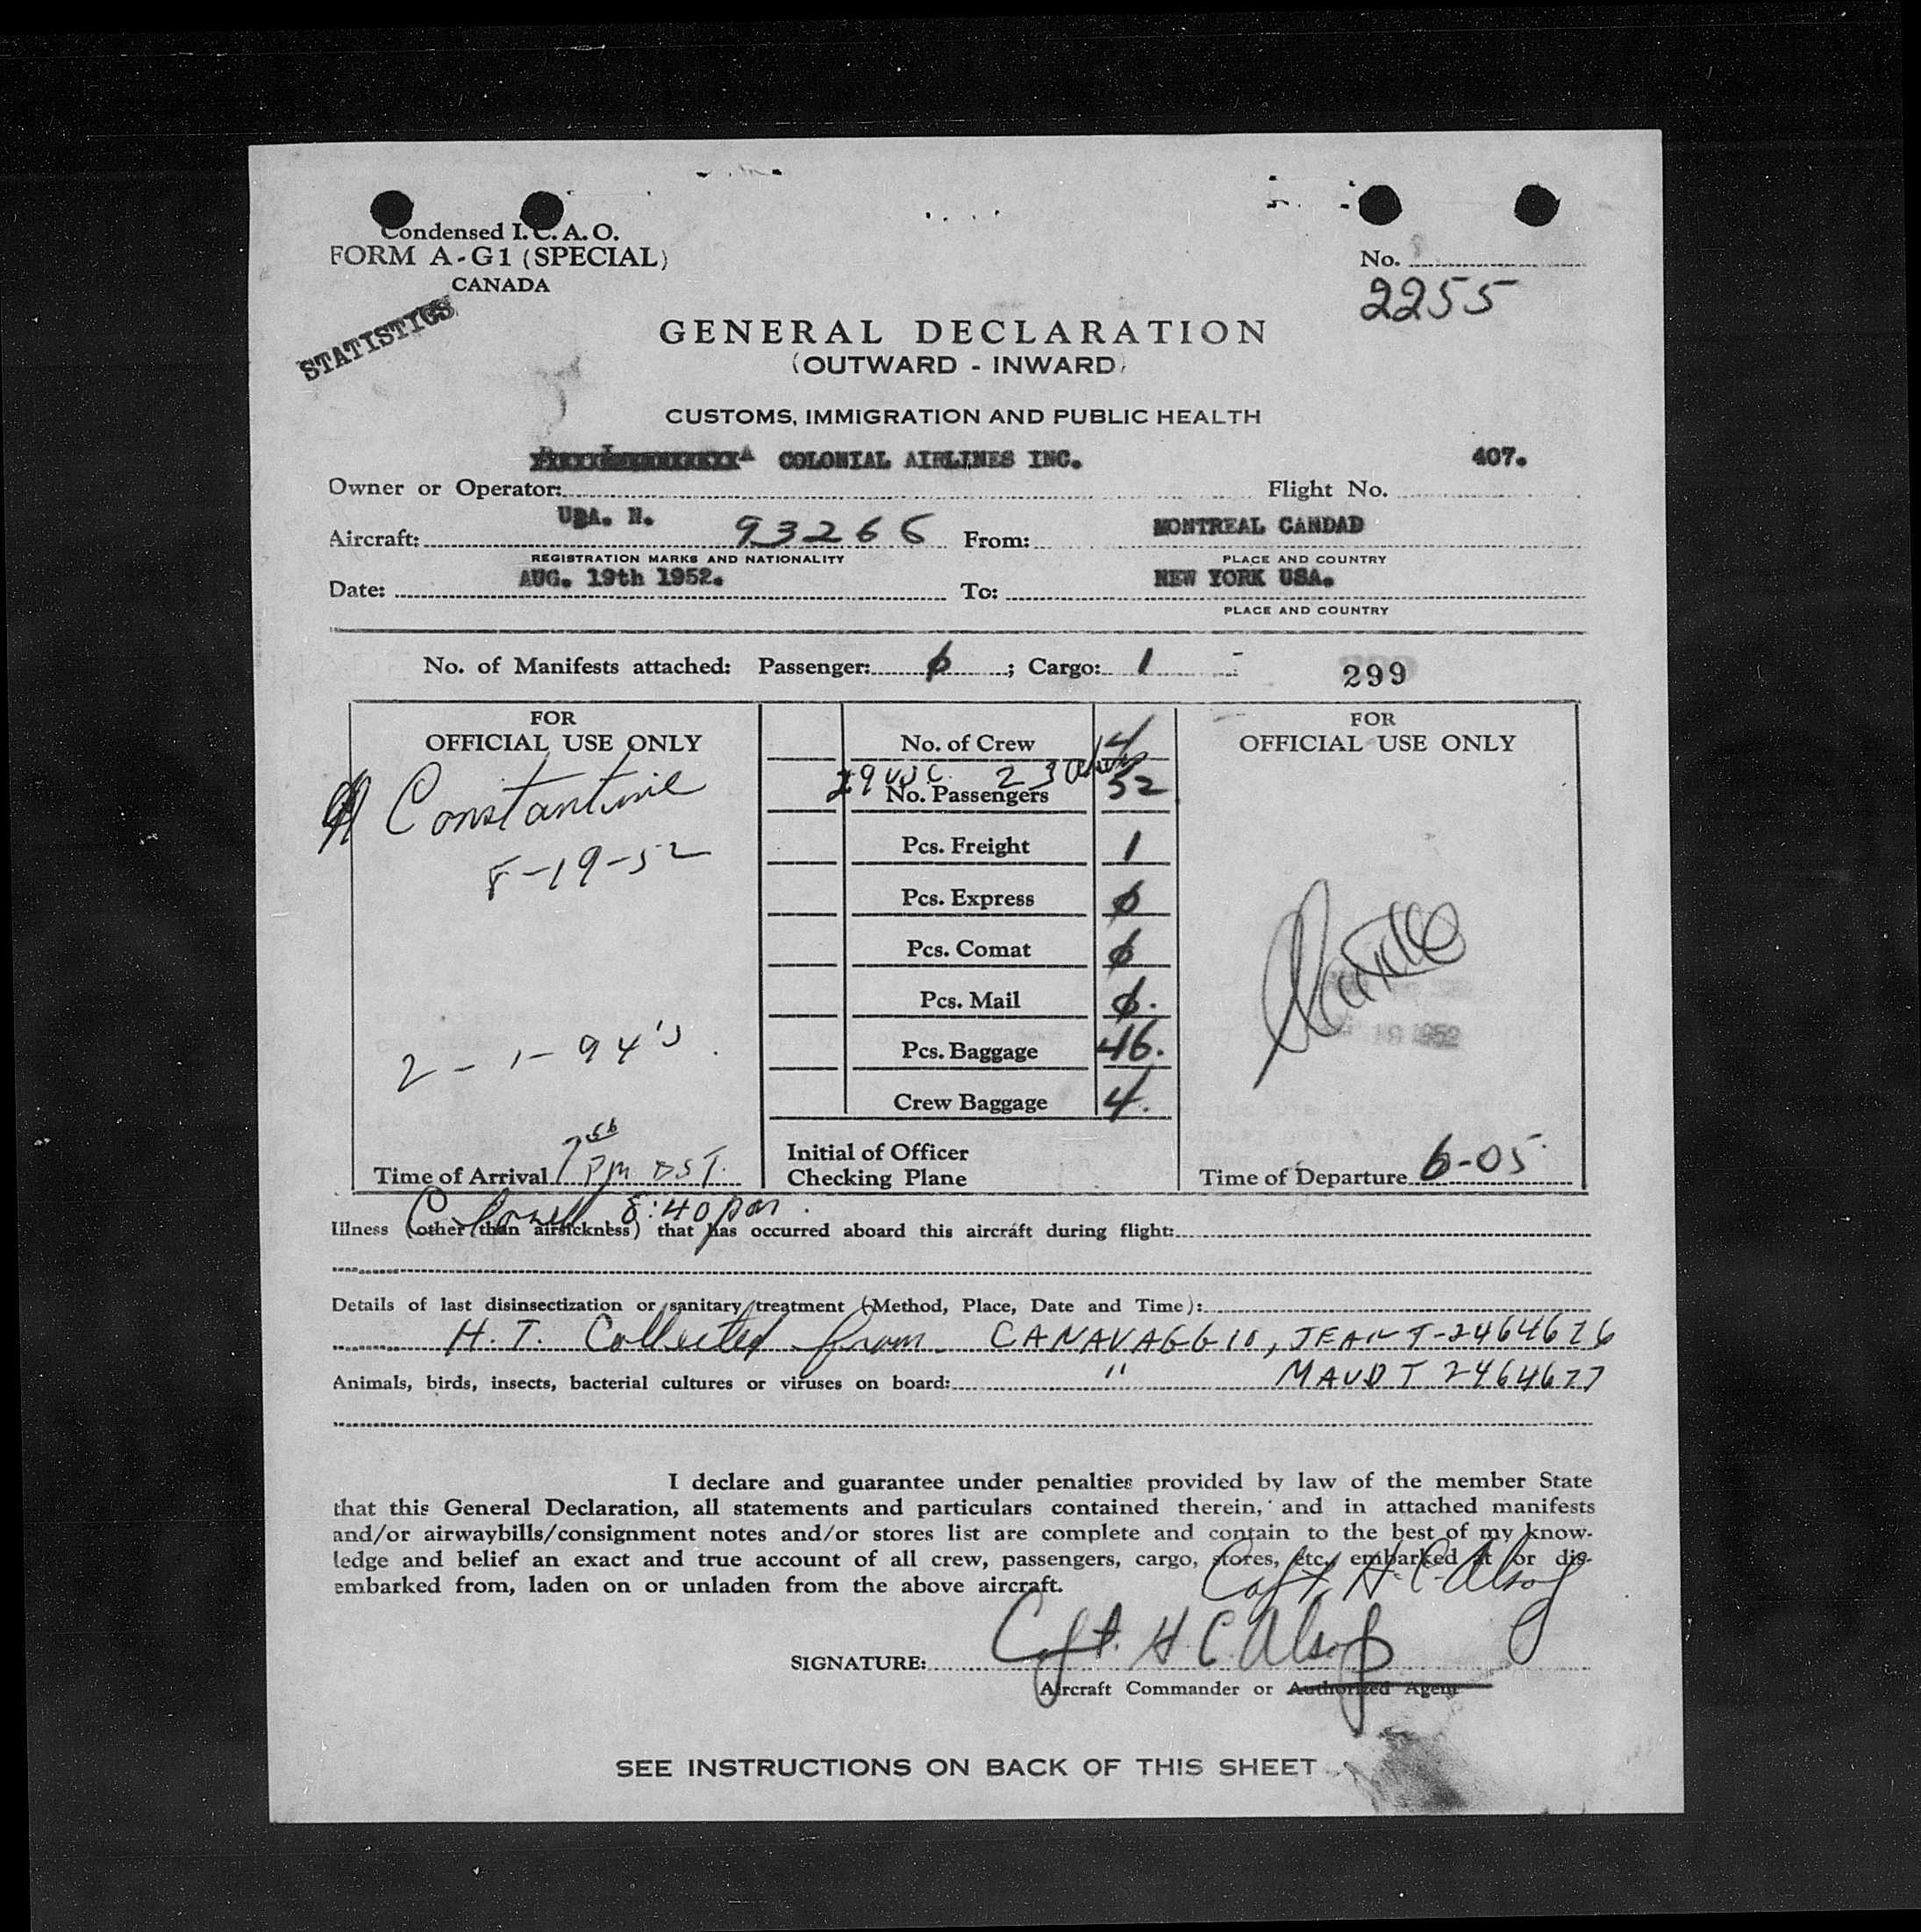 Condensed I.C.A.O.
FORM A-G1 (SPECIAL)
CANADA
No.
2255
STATISTICS
GENERAL DECLARATION
(OUTWARD - INWARD)
CUSTOMS, IMMIGRATION AND PUBLIC HEALTH
COLONIAL AIRLINES INC. 407.
Owner or Operator: Flight No.
USA. N. 93266 MONTREAL CANDAD
Aircraft: From:
REGISTRATION MARKS AND NATIONALITY PLACE AND COUNTRY
AUG. 19th 1952. NEW YORK USA.
Date: To:
PLACE AND COUNTRY
No. of Manifests attached: Passenger: 0 ; Cargo: 1 299
FOR
OFFICIAL USE ONLY
Constantine
8-19-52
2-1-94's
Time of Arrival 7 56 PM DST.
No. of Crew 4
29 USC. 23 Aliens
No. Passengers 52
Pcs. Freight 1
Pcs. Express 0
Pcs. Comat 0
Pcs. Mail 0.
Pcs. Baggage 46.
Crew Baggage 4.
Initial of Officer
Checking Plane
FOR
OFFICIAL USE ONLY
19 1952
Time of Departure 6-05
8:40 pm
Illness (other than airsickness) that has occurred aboard this aircraft during flight:
Details of last disinsectization or sanitary treatment (Method, Place, Date and Time):
H.T. Collected from CANAVAGGIO, JEAN T-2464676
" MAUD T 2464677
Animals, birds, insects, bacterial cultures or viruses on board:
I declare and guarantee under penalties provided by law of the member State
that this General Declaration, all statements and particulars contained therein, and in attached manifests
and/or airwaybills/consignment notes and/or stores list are complete and contain to the best of my know-
ledge and belief an exact and true account of all crew, passengers, cargo, stores, etc. embarked at or dis-
embarked from, laden on or unladen from the above aircraft.
Capt. H.C. Alsop
Capt. H C Alsop
SIGNATURE:
Aircraft Commander or Authorized Agent
SEE INSTRUCTIONS ON BACK OF THIS SHEET